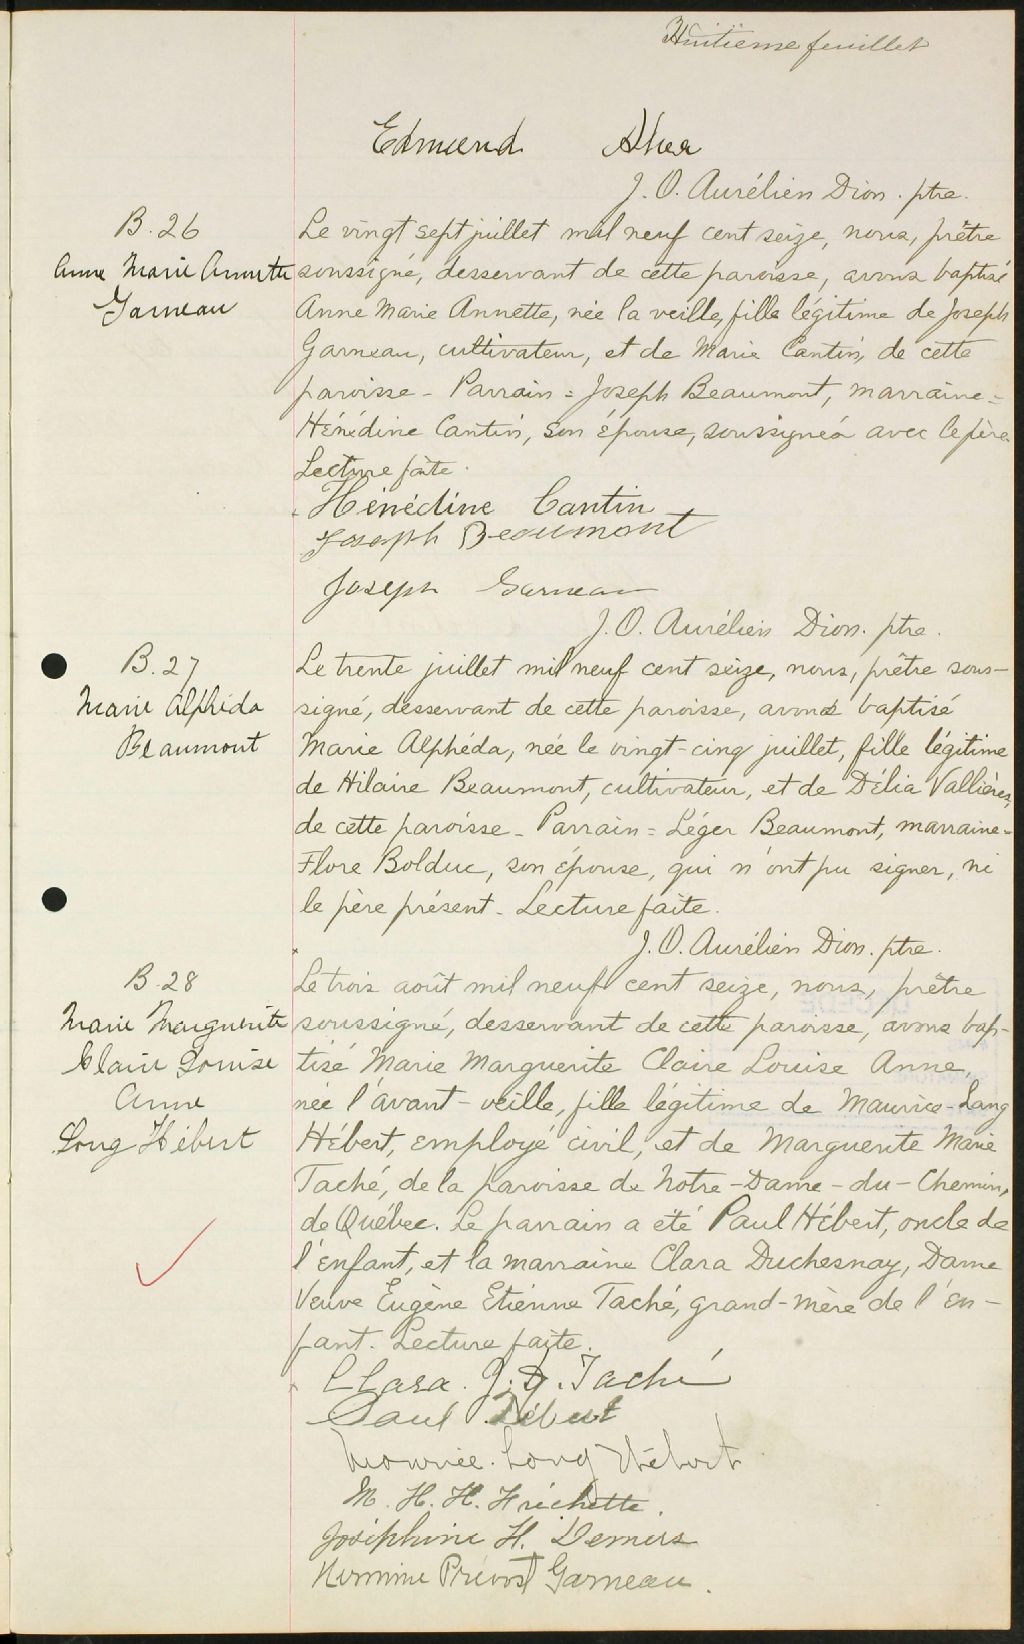 Huitième feuillet
Edmund Aher
J. O. Aurélien Dion. ptre.
B. 26
Anne Marie Annette
Garneau
Le vingt sept juillet mil neuf cent seize, nous, prêtre
soussigné, desservant de cette paroisse, avons baptisé
Anne Marie Annette, née la veille, fille légitime de Joseph
Garneau, cultivateur, et de Marie Cantin, de cette
paroisse - Parrain = Joseph Beaumont, marraine =
Hénédine Cantin, son épouse, soussignés avec le père.
Lecture faite.
Hénédine Cantin
Joseph Beaumont
Joseph Garneau
J. O. Aurélien Dion. ptre.
B. 27
Marie Alphéda
Beaumont
Le trente juillet mil neuf cent seize, nous, prêtre sous-
signé, desservant de cette paroisse, avons baptisé
Marie Alphéda, née le vingt-cinq juillet, fille légitime
de Hilaire Beaumont, cultivateur, et de Délia Vallières,
de cette paroisse - Parrain = Léger Beaumont, marraine =
Flore Bolduc, son épouse, qui n'ont pu signer, ni
le père présent. Lecture faite.
J. O. Aurélien Dion. ptre.
B. 28
Marie Marguerite
Claire Louise
Anne
Lang Hébert
Le trois août mil neuf cent seize, nous, prêtre
soussigné, desservant de cette paroisse, avons bap-
tisé Marie Marguerite Claire Louise Anne,
née l'avant-veille, fille légitime de Maurice-Lang
Hébert, employé civil, et de Marguerite Marie
Taché, de la paroisse de Notre-Dame-du-Chemin,
de Québec. Le parrain a été Paul Hébert, oncle de
l'enfant, et la marraine Clara Duchesnay, Dame
Veuve Eugène Etienne Taché, grand-mère de l'en-
fant. Lecture faite.
Clara J. D. Taché
Paul Hébert
Maurice Lang Hébert
M. H. H. Fréchette.
Joséphine H. Demers
Hermine Prévost Garneau.